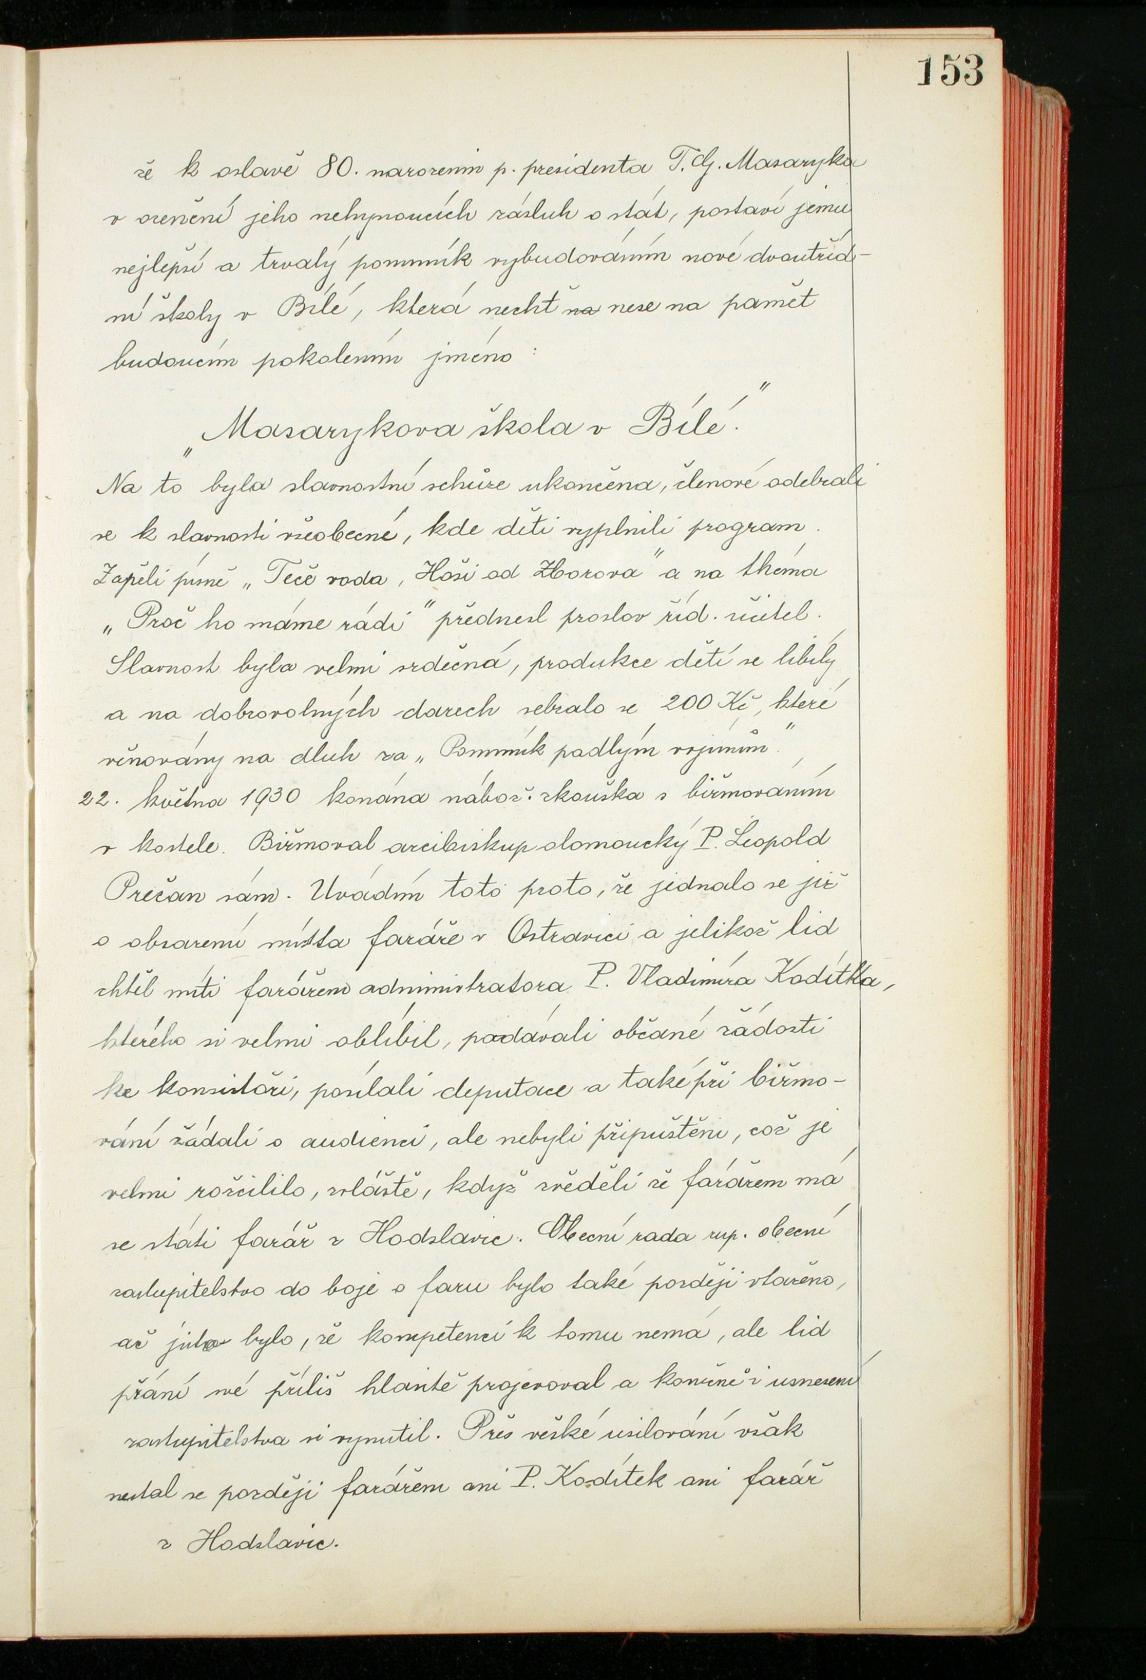 153
že k oslavě 80. narozenin p. presidenta T. G. Masaryka
v ocenění jeho nehynoucích zásluh o stát, postaví jemu
nejlepší a trvalý pomník vybudováním nové dvoutříd-
ní školy v Bílé, která nechť na nese na paměť
budoucím pokolením jméno:
„Masarykova škola v Bílé."
Na to byla slavnostní schůze ukončena, členové odebrali
se k slavnosti všeobecné, kde děti vyplnili program.
Zapěli písně „Teče voda, Hoši od Zborova" a na théma
„Proč ho máme rádi" přednesl proslov říd. učitel.
Slavnost byla velmi srdečná, produkce dětí se líbily
a na dobrovolných darech sebralo se 200 Kč, které
věnovány na dluh za „Pomník padlým vojínům".
22. května 1930 konána nábož. zkouška s biřmováním
v kostele. Biřmoval arcibiskup olomoucký P. Leopold
Prečan sám. Uvádím toto proto, že jednalo se již
o obsazení místa faráře v Ostravici a jelikož lid
chtěl míti farářem administratora P. Vladimíra Kodítka,
kterého si velmi oblíbil, podávali občané žádosti
ke konsistoři, posílali deputace a také při biřmo-
vání žádali o audienci, ale nebyli připuštěni, což je
velmi rozčililo, zvláště, když zvěděli že farářem má
se státi farář z Hodslavic. Obecní rada resp. obecní
zastupitelstvo do boje o faru bylo také později vtaženo,
ač jisto bylo, že kompetenci k tomu nemá, ale lid
přání své příliš hlasitě projevoval a konečně i usnesení
zastupitelstva si vynutil. Přes vešké usilování však
nestal se později farářem ani P. Kodítek ani farář
z Hodslavic.